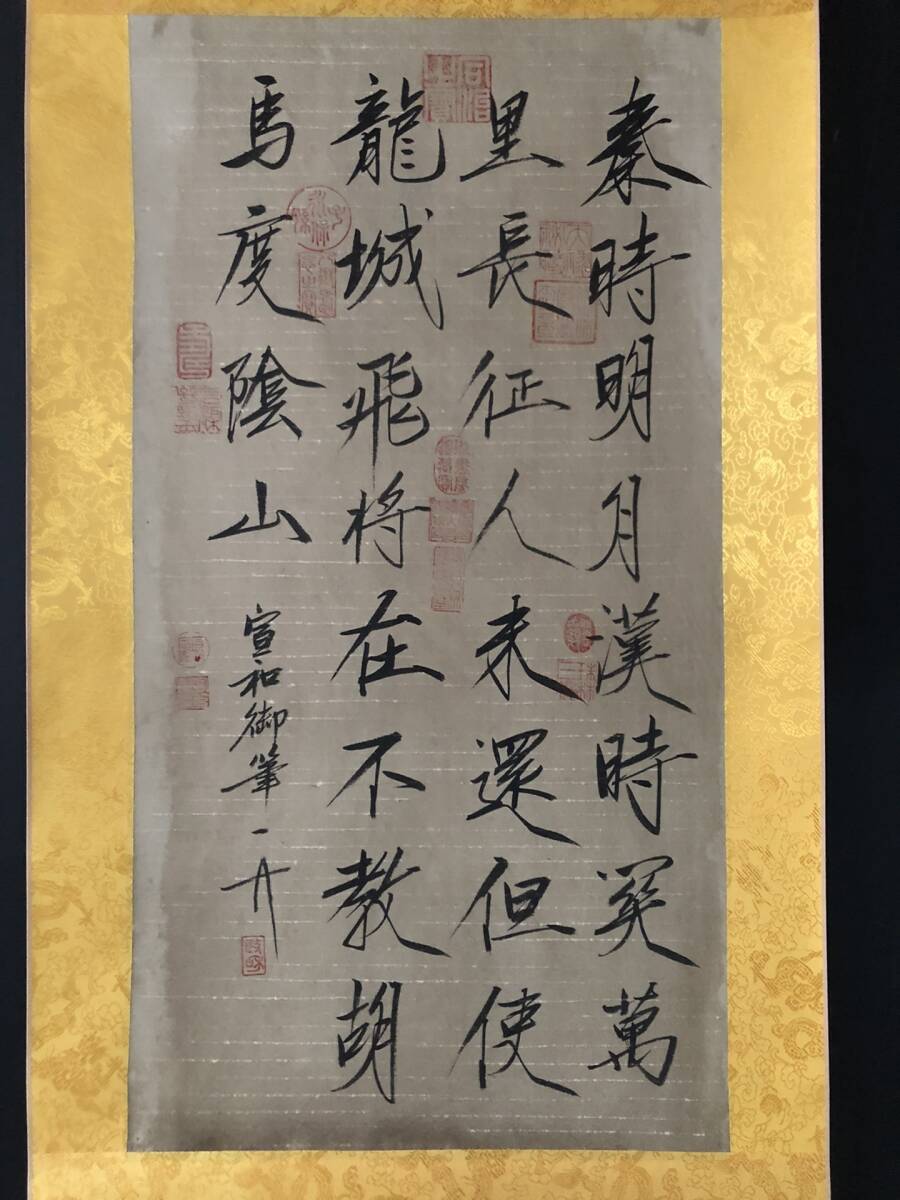 秦時明月漢時関萬
里長征人未還但使
龍城飛将在不教胡
馬度陰山
宣和御筆